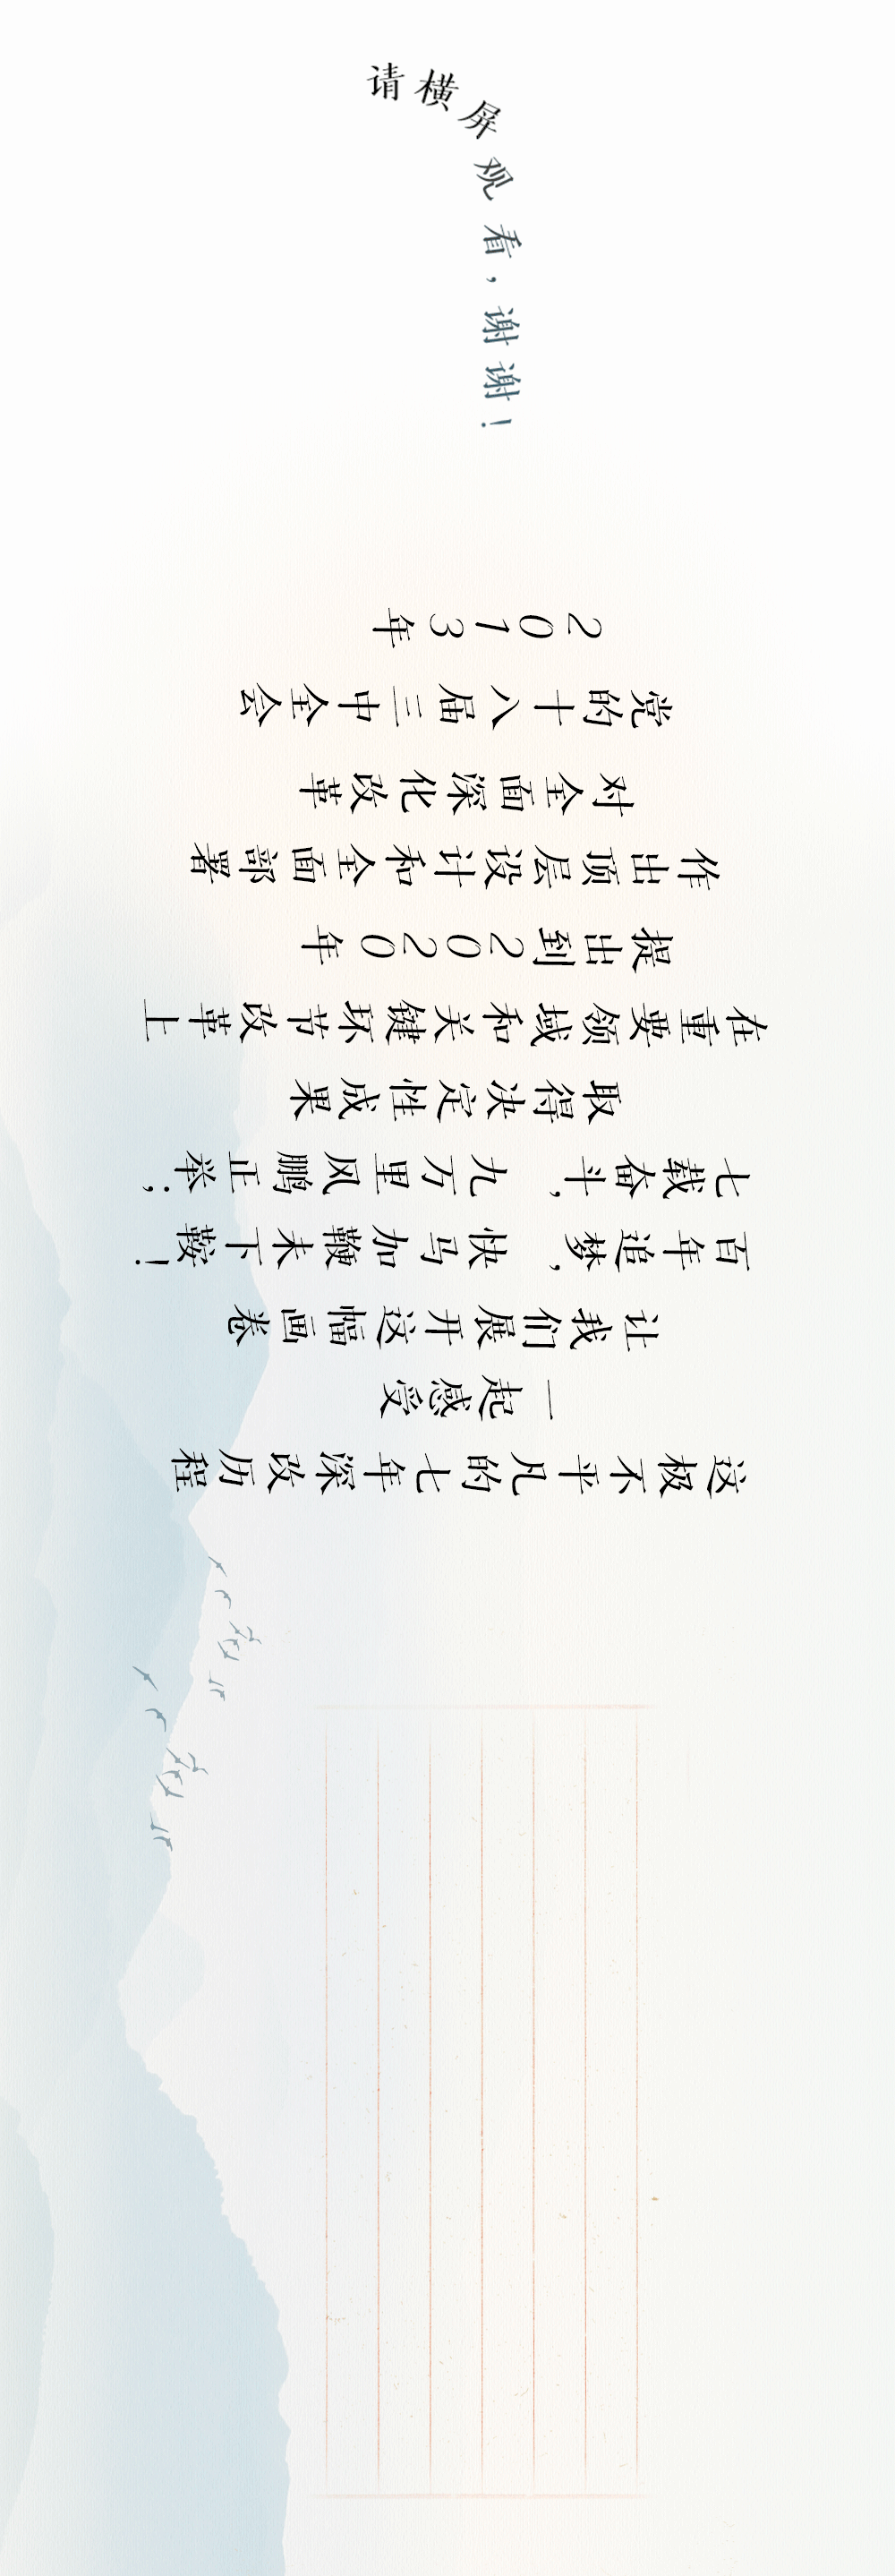 请横屏观看，谢谢！
2013年
党的十八届三中全会
对全面深化改革
作出顶层设计和全面部署
提出到2020年
在重要领域和关键环节改革上
取得决定性成果
七载奋斗，九万里风鹏正举；
百年追梦，快马加鞭未下鞍！
让我们展开这幅画卷
一起感受
这极不平凡的七年深改历程